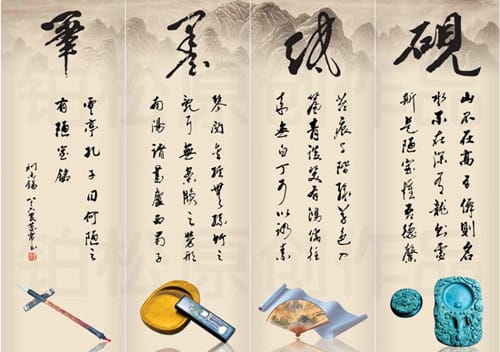 硯
山不在高有僊則名
水不在深有龍則靈
斯是陋室惟吾德馨
紙
苔痕上階綠草色入
簾青談笑有鴻儒往
來無白丁可以調素
墨
琴閱金經無絲竹之
亂耳無案牘之勞形
南陽諸葛廬西蜀子
筆
雲亭孔子曰何陋之
有陋室銘
劉禹錫
铂松原创作品